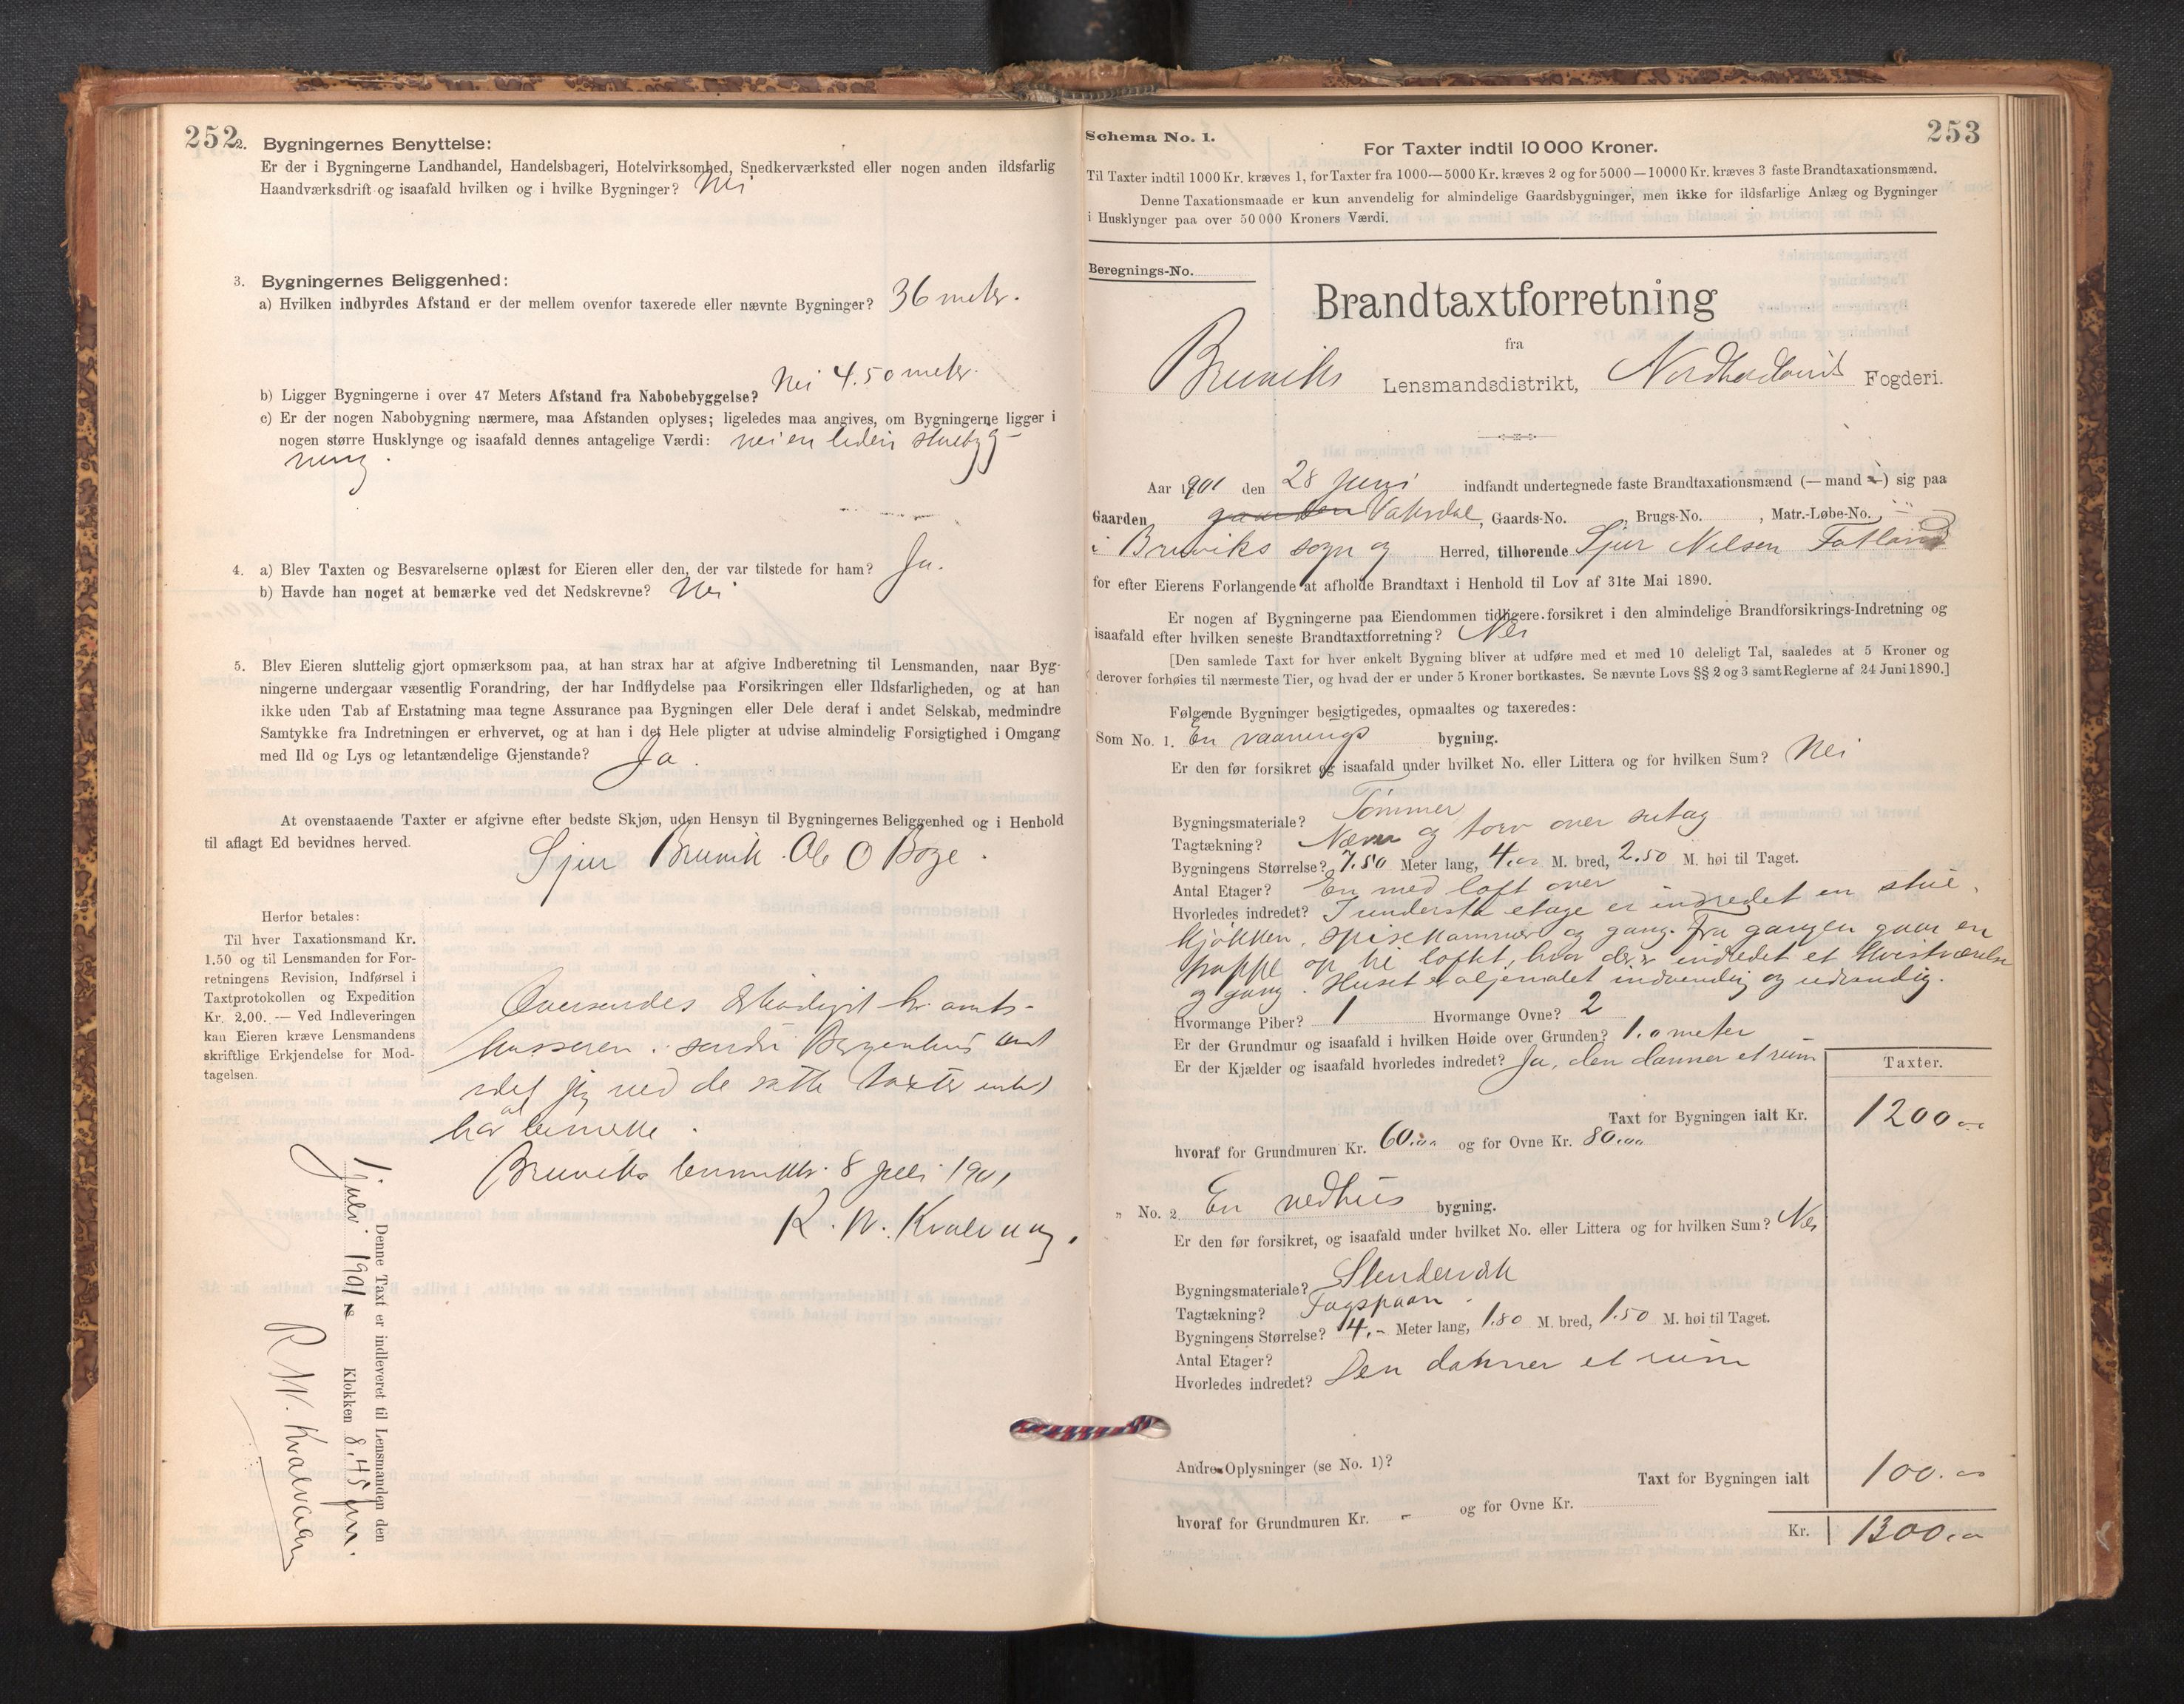 252
2. Bygningernes Benyttelse:
Er der i Bygningerne Landhandel, Handelsbageri, Hotelvirksomhed, Snedkerværksted eller nogen anden ildsfarlig
Haandværksdrift og isaafald hvilken og i hvilke Bygninger? Nei
3. Bygningernes Beliggenhed:
a) Hvilken indbyrdes Afstand er der mellem ovenfor taxerede eller nævnte Bygninger? 36 meter.
b) Ligger Bygningerne i over 47 Meters Afstand fra Nabobebyggelse? Nei 4.50 meter.
c) Er der nogen Nabobygning nærmere, maa Afstanden oplyses; ligeledes maa angives, om Bygningerne ligger i
nogen større Husklynge og isaafald dennes antagelige Værdi: nei en liden stuebyg-
ning.
4. a) Blev Taxten og Besvarelserne oplæst for Eieren eller den, der var tilstede for ham? Ja.
b) Havde han noget at bemærke ved det Nedskrevne? Nei
5. Blev Eieren sluttelig gjort opmærksom paa, at han strax har at afgive Indberetning til Lensmanden, naar Byg-
ningerne undergaar væsentlig Forandring, der har Indflydelse paa Forsikringen eller Ildsfarligheden, og at han
ikke uden Tab af Erstatning maa tegne Assurance paa Bygningen eller Dele deraf i andet Selskab, medmindre
Samtykke fra Indretningen er erhvervet, og at han i det Hele pligter at udvise almindelig Forsigtighed i Omgang
med Ild og Lys og letantændelige Gjenstande? Ja.
At ovenstaaende Taxter er afgivne efter bedste Skjøn, uden Hensyn til Bygningernes Beliggenhed og i Henhold
til aflagt Ed bevidnes herved.
Sjur Bruvik. Ole O Boge.
Herfor betales:
Til hver Taxationsmand Kr.
1.50 og til Lensmanden for For-
retningens Revision, Indførsel i
Taxtprotokollen og Expedition
Kr. 2.00. — Ved Indleveringen
kan Eieren kræve Lensmandens
skriftlige Erkjendelse for Mod-
tagelsen.
Oversendes ærbødigst hr. amts-
kasseren i søndre Bergenhus amt
idet jeg ved de satte taxter intet
har at bemerke.
Bruviks 8 juli 1901
K. W. Kvalvaag.
Denne Taxt er indleveret til Lensmanden den
1 juli 1901 Klokken 8.45 fm.
K W. Kvalvaag
253
Schema No. 1.
For Taxter indtil 10 000 Kroner.
Til Taxter indtil 1000 Kr. kræves 1, for Taxter fra 1000—5000 Kr. kræves 2 og for 5000—10000 Kr. kræves 3 faste Brandtaxationsmænd.
Denne Taxationsmaade er kun anvendelig for almindelige Gaardsbygninger, men ikke for ildsfarlige Anlæg og Bygninger
i Husklynger paa over 50 000 Kroners Værdi.
Beregnings-No.
Brandtaxtforretning
fra
Bruviks Lensmandsdistrikt, Nordhordlands Fogderi.
Aar 1901 den 28 juni indfandt undertegnede faste Brandtaxationsmænd (— mand —) sig paa
Gaarden gaarden Vaksdal, Gaards-No. , Brugs-No. , Matr.-Løbe-No.
i Bruviks sogn og Herred, tilhørende Sjur Nilsen Fatland
for efter Eierens Forlangende at afholde Brandtaxt i Henhold til Lov af 31te Mai 1890.
Er nogen af Bygningerne paa Eiendommen tidligere forsikret i den almindelige Brandforsikrings-Indretning og
isaafald efter hvilken seneste Brandtaxtforretning? Nei
[Den samlede Taxt for hver enkelt Bygning bliver at udføre med et med 10 deleligt Tal, saaledes at 5 Kroner og
derover forhøies til nærmeste Tier, og hvad der er under 5 Kroner bortkastes. Se nævnte Lovs §§ 2 og 3 samt Reglerne af 24 Juni 1890.]
Følgende Bygninger besigtigedes, opmaaltes og taxeredes:
Som No. 1. En vaanings bygning.
Er den før forsikret og isaafald under hvilket No. eller Littera og for hvilken Sum? Nei
Bygningsmateriale? Tømmer
Tagtækning? Næver og torv over sutag
Bygningens Størrelse? 7.50 Meter lang, 4.00 M. bred, 2.50 M. høi til Taget.
Antal Etager? En med loft over
Hvorledes indredet? I underste etage er indredet en stue,
kjøkken, spisekammer og gang. Fra gangen gaar en
trappe op til loftet, hvor der er indredet et kvistværelse
og gang. Huset er oljemalet indvendig og udvendig.
Hvormange Piber? 1 Hvormange Ovne? 2
Er der Grundmur og isaafald i hvilken Høide over Grunden? 1.0 meter
Er der Kjælder og isaafald hvorledes indredet? Ja, den danner et rum
Taxter.
Taxt for Bygningen ialt Kr. 1200.00
hvoraf for Grundmuren Kr. 60.00 og for Ovne Kr. 80.00
„ No. 2. En vedhus bygning.
Er den før forsikret, og isaafald under hvilket No. eller Littera og for hvilken Sum? Nei
Bygningsmateriale? Stenderverk
Tagtækning? Tagspaan.
Bygningens Størrelse? 4.- Meter lang, 1.80 M. bred, 1.50 M. høi til Taget.
Antal Etager?
Hvorledes indredet? Den danner et rum
Andre Oplysninger (se No. 1)?
Taxt for Bygningen ialt 100.00
hvoraf for Grundmuren Kr. - og for Ovne Kr.
Kr. 1300.00